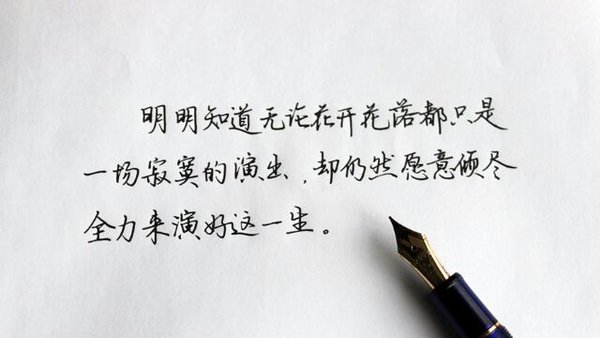 明明知道无论花开花落都只是
一场寂寞的演出,却仍然愿意倾尽
全力来演好这一生。